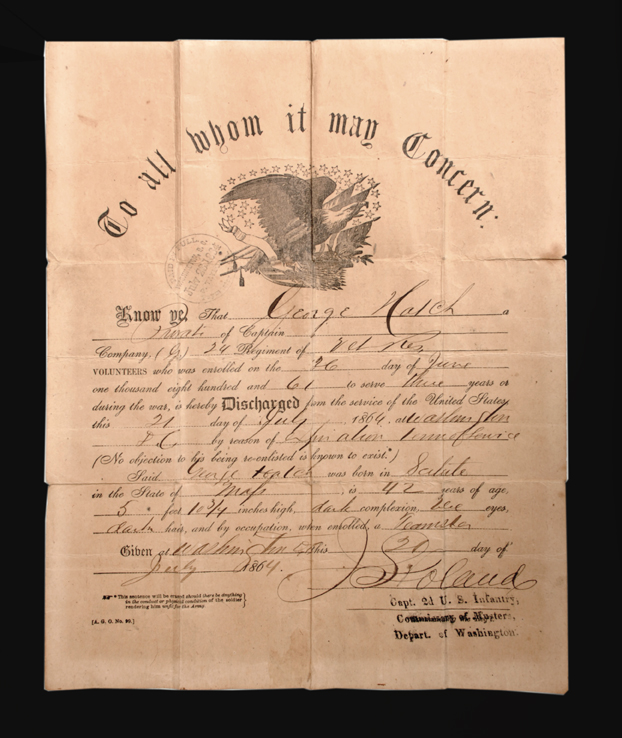 To all whom it may Concern:
Know ye, That George Hatch a
Private of Captain
Company, (G) 24 Regiment of Vet Res
VOLUNTEERS who was enrolled on the 26 day of June
one thousand eight hundred and 61 to serve three years or
during the war, is hereby Discharged from the service of the United States,
this 21 day of July, 1864, at Washington
D C by reason of Expiration Term of Service
(No objection to his being re-enlisted is known to exist.*)
Said George Hatch was born in
in the State of Mass, is 42 years of age,
5 feet 10 3/4 inches high, dark complexion, blue eyes,
dark hair, and by occupation, when enrolled, a Teamster
Given at Washington this 20 day of
July 1864.
Capt. 2d U. S. Infantry,
Commissary of Musters,
Depart. of Washington.
* This sentence will be erased should there be anything
in the conduct or physical condition of the soldier
rendering him unfit for the Army
[A. G. O. No. 99.]